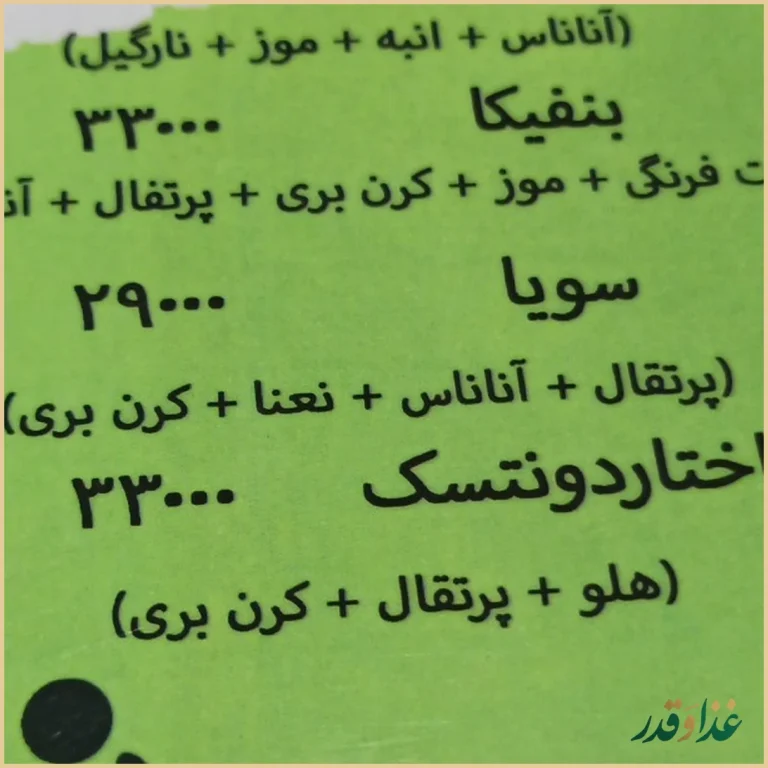 (آناناس + انبه + موز + نارگیل)
بنفیکا ۳۳۰۰۰
فرنگی + موز + کرن بری + پرتفال +
سویا ۲۹۰۰۰
(پرتقال + آناناس + نعنا + کرن بری)
اختاردونتسک ۳۳۰۰۰
(هلو + پرتقال + کرن بری)
غذا و قدر